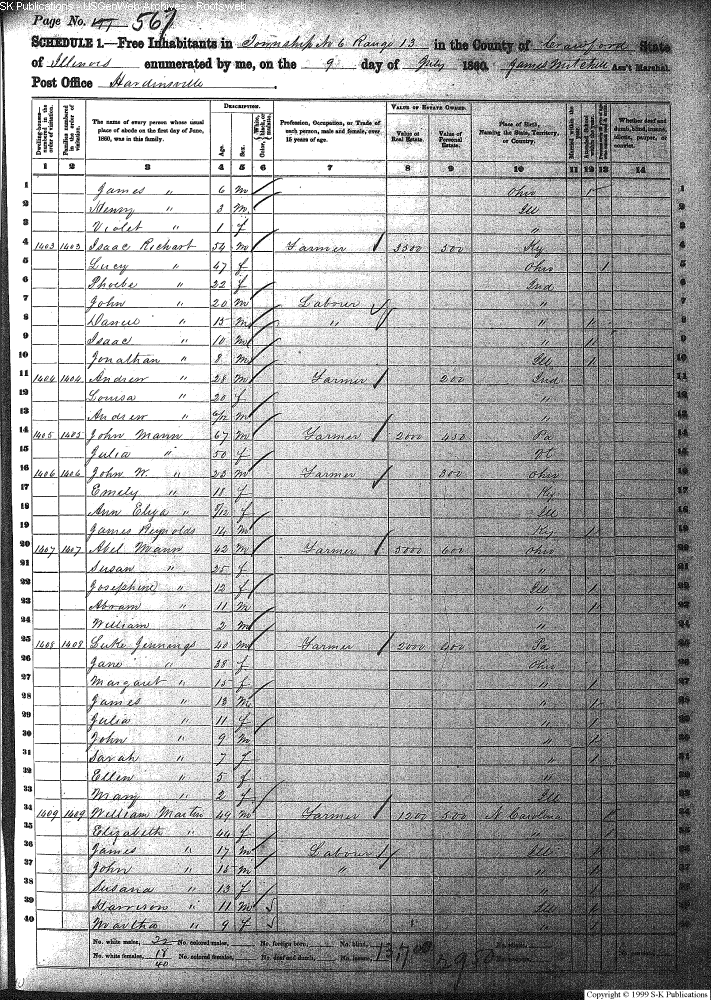 SK Publications - USGenWeb Archives - Rootsweb
Page No. 41 567
SCHEDULE 1.—Free Inhabitants in Township No 6 Range 13 in the County of Crawford State
of Illinois enumerated by me, on the 9 day of July 1860. James Mitchell Ass't Marshal.
Post Office Hardinsville
Dwelling-houses—numbered in the order of visitation. Families numbered in the order of visitation. The name of every person whose usual place of abode on the first day of June, 1860, was in this family. DESCRIPTION. Age. Sex. Color, White, black, or mulatto. Profession, Occupation, or Trade of each person, male and female, over 15 years of age. VALUE OF ESTATE OWNED. Value of Real Estate. Value of Personal Estate. Place of Birth, Naming the State, Territory, or Country. Married within the year. Attended School within the year. Whether deaf and dumb, blind, insane, idiotic, pauper, or convict.
1 2 3 4 5 6 7 8 9 10 11 12 13 14
1 James " 6 m Ohio 1 1
2 Henry " 3 m Ill 2
3 Violet " 1 f " 3
4 1403 1403 Isaac Richart 54 m Farmer 3500 500 Ky 4
5 Lucy " 47 f Ohio 1 5
6 Phoebe " 22 f Ind 6
7 John " 20 m Labourer " 7
8 Daniel " 15 m " " 11 8
9 Isaac " 10 m " 11 9
10 Jonathan " 8 m Ill 1 10
11 1404 1404 Andrew " 28 m Farmer 200 Ind 11
12 Louisa " 20 f " 12
13 Andrew " 6/12 m " 13
14 1405 1405 John Mann 67 m Farmer 2000 450 Pa 14
15 Julia " 50 f Vt 15
16 1406 1406 John W. " 23 m Farmer 300 Ohio 16
17 Emely " 18 f Ky 17
18 Ann Eliza " f Ill 18
19 James Reynolds 14 m Ky 1 19
20 1407 1407 Abel Mann 42 m Farmer 5000 600 Ohio 20
21 Susan " 25 f 21
22 Josephine " 12 f Ill 1 22
23 Abram " 11 m " 1 23
24 William " 2 m "
25 1408 1408 Luke Jennings 40 m Farmer 2000 400 Pa
26 Jane " 38 f Ohio 26
27 Margaret " 15 f " 1 27
28 James " 13 m " 1 28
29 Julia " 11 f 1 29
30 John " 9 m " 1 30
31 Sarah " 7 f " 1 31
32 Ellen " 5 f " 32
33 Mary " 2 f Ill
34 1409 1409 William Martin 49 m Farmer 1200 500 N Carolina
35 Elizabeth " 44 f "
36 James " 17 m Labourer Ill 1
37 John " 15 m " " 1
38 Susana " 13 f 1
39 Harrison " 11 m Ill 1
40 Martha " 9 f 1
No. white males, 22 No. colored males, No. foreign born, No. blind,
No. white females, 18 No. colored females, No. deaf and dumb, No. insane,
40 2950
Copyright © 1999 S-K Publications